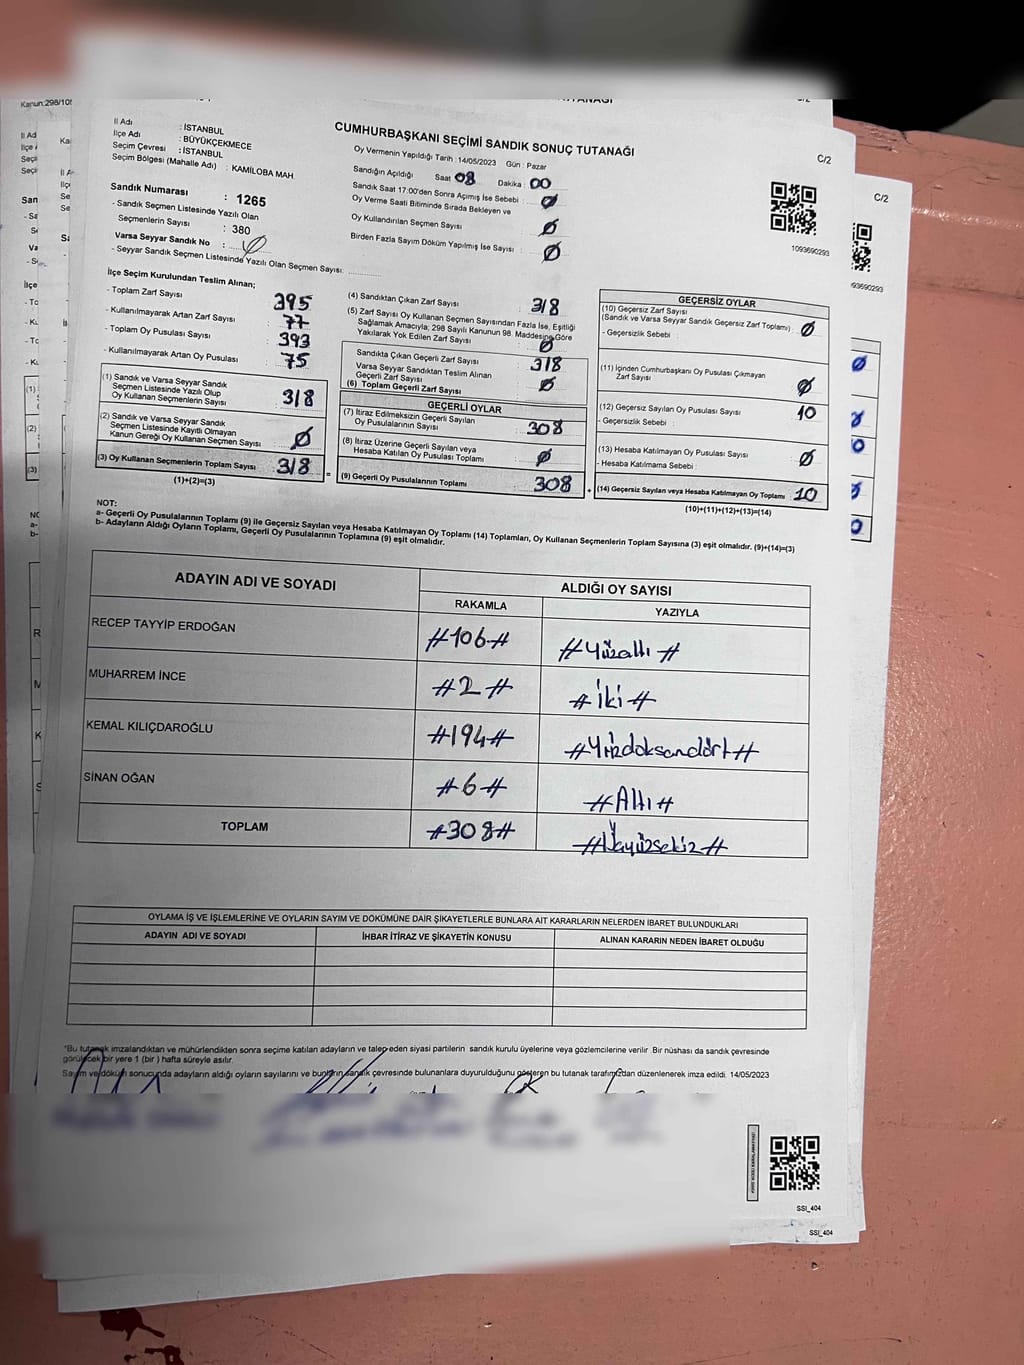 Kanun:298/105
C/2
İl Adı : İSTANBUL
İlçe Adı : BÜYÜKÇEKMECE
Seçim Çevresi : İSTANBUL
Seçim Bölgesi (Mahalle Adı) : KAMİLOBA MAH.
Sandık Numarası : 1265
- Sandık Seçmen Listesinde Yazılı Olan
Seçmenlerin Sayısı : 380
Varsa Seyyar Sandık No : Ø
- Seyyar Sandık Seçmen Listesinde Yazılı Olan Seçmen Sayısı:
CUMHURBAŞKANI SEÇİMİ SANDIK SONUÇ TUTANAĞI
Oy Vermenin Yapıldığı Tarih : 14/05/2023 Gün : Pazar
Sandığın Açıldığı Saat 08 Dakika : 00
Sandık Saat 17:00'den Sonra Açımış İse Sebebi : Ø
Oy Verme Saati Bitiminde Sırada Bekleyen ve
Oy Kullandırılan Seçmen Sayısı Ø
Birden Fazla Sayım Döküm Yapılmış İse Sayısı : Ø
C/2
1093690293
C/2
093690293
İlçe Seçim Kurulundan Teslim Alınan;
- Toplam Zarf Sayısı 395
- Kullanılmayarak Artan Zarf Sayısı : 77
- Toplam Oy Pusulası Sayısı 393
- Kullanılmayarak Artan Oy Pusulası 75
(1) Sandık ve Varsa Seyyar Sandık
Seçmen Listesinde Yazılı Olup
Oy Kullanan Seçmenlerin Sayısı : 318
(2) Sandık ve Varsa Seyyar Sandık
Seçmen Listesinde Kayıtlı Olmayan
Kanun Gereği Oy Kullanan Seçmen Sayısı Ø
(3) Oy Kullanan Seçmenlerin Toplam Sayısı 318
(1)+(2)=(3)
(4) Sandıktan Çıkan Zarf Sayısı : 318
(5) Zarf Sayısı Oy Kullanan Seçmen Sayısından Fazla İse, Eşitliği
Sağlamak Amacıyla; 298 Sayılı Kanunun 98. Maddesine Göre
Yakılarak Yok Edilen Zarf Sayısı : Ø
Sandıkta Çıkan Geçerli Zarf Sayısı : 318
Varsa Seyyar Sandıktan Teslim Alınan
Geçerli Zarf Sayısı : Ø
(6) Toplam Geçerli Zarf Sayısı
GEÇERLİ OYLAR
(7) İtiraz Edilmeksizin Geçerli Sayılan
Oy Pusulalarının Sayısı 308
(8) İtiraz Üzerine Geçerli Sayılan veya
Hesaba Katılan Oy Pusulası Toplamı Ø
(9) Geçerli Oy Pusulalarının Toplamı 308
GEÇERSİZ OYLAR
(10) Geçersiz Zarf Sayısı
(Sandık ve Varsa Seyyar Sandık Geçersiz Zarf Toplamı) : Ø
- Geçersizlik Sebebi :
(11) İçinden Cumhurbaşkanı Oy Pusulası Çıkmayan
Zarf Sayısı Ø
(12) Geçersiz Sayılan Oy Pusulası Sayısı 10
- Geçersizlik Sebebi :
(13) Hesaba Katılmayan Oy Pusulası Sayısı Ø
- Hesaba Katılmama Sebebi :
(14) Geçersiz Sayılan veya Hesaba Katılmayan Oy Toplamı 10
(10)+(11)+(12)+(13)=(14)
NOT:
a- Geçerli Oy Pusulalarının Toplamı (9) ile Geçersiz Sayılan veya Hesaba Katılmayan Oy Toplamı (14) Toplamları, Oy Kullanan Seçmenlerin Toplam Sayısına (3) eşit olmalıdır. (9)+(14)=(3)
b- Adayların Aldığı Oyların Toplamı, Geçerli Oy Pusulalarının Toplamına (9) eşit olmalıdır.
ADAYIN ADI VE SOYADI ALDIĞI OY SAYISI
RAKAMLA YAZIYLA
RECEP TAYYİP ERDOĞAN #106# #Yüzaltı#
MUHARREM İNCE #2# #iki#
KEMAL KILIÇDAROĞLU #194# #Yüzdoksandört#
SİNAN OĞAN #6# #Altı#
TOPLAM #308# #Üçyüzsekiz#
OYLAMA İŞ VE İŞLEMLERİNE VE OYLARIN SAYIM VE DÖKÜMÜNE DAİR ŞİKAYETLERLE BUNLARA AİT KARARLARIN NELERDEN İBARET BULUNDUKLARI
ADAYIN ADI VE SOYADI İHBAR İTİRAZ VE ŞİKAYETİN KONUSU ALINAN KARARIN NEDEN İBARET OLDUĞU
*Bu tutanak imzalandıktan ve mühürlendikten sonra seçime katılan adayların ve talep eden siyasi partilerin sandık kurulu üyelerine veya gözlemcilerine verilir .Bir nüshası da sandık çevresinde
görülecek bir yere 1 (bir ) hafta süreyle asılır.
Sayım ve döküm sonucunda adayların aldığı oyların sayılarını ve bunların sandık çevresinde bulunanlara duyurulduğunu gösteren bu tutanak tarafımızdan düzenlenerek imza edildi. 14/05/2023
SSI_404
SSI_404